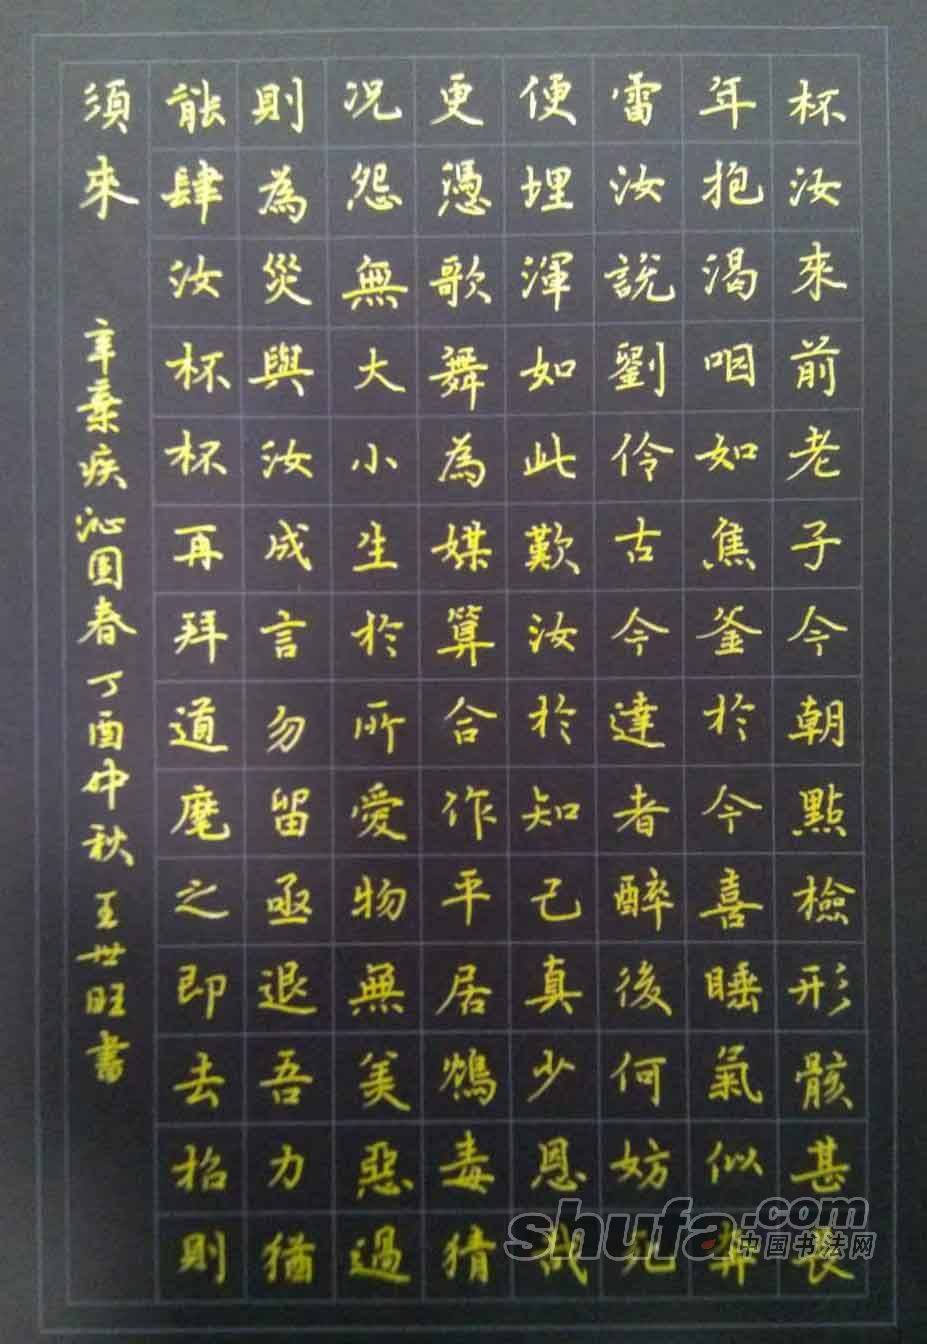 杯汝來前老子今朝點檢形骸甚長
年抱渴咽如焦釜於今喜睡氣似奔
雷汝說劉伶古今達者醉後何妨死
便埋渾如此歎汝於知己真少恩哉
更憑歌舞為媒算合作平居鴆毒猜
况怨無大小生於所愛物無美惡過
則為災與汝成言勿留亟退吾力猶
能肆汝杯杯再拜道麾之即去招則
須來 辛棄疾沁園春丁酉仲秋王世旺書
shufa.com
中国书法网